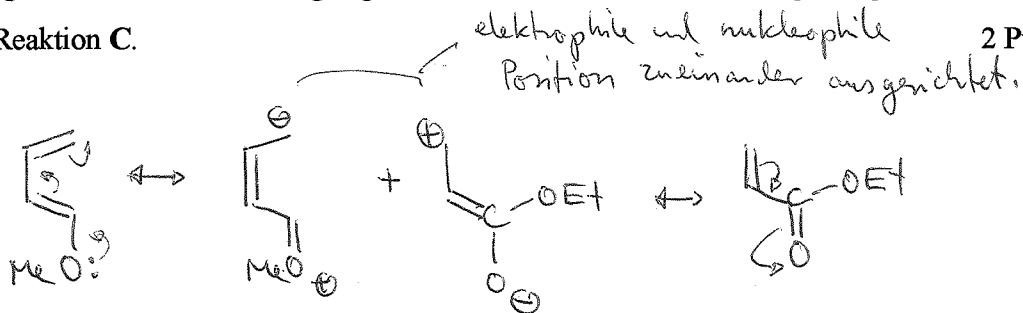 Reaktion C.
elektrophile und nukleophile
2 P
Position zueinander ausgerichtet.
⊖
⊕
+
OEt
C
OEt
C
O
MeO:
MeO
⊕
O
⊖